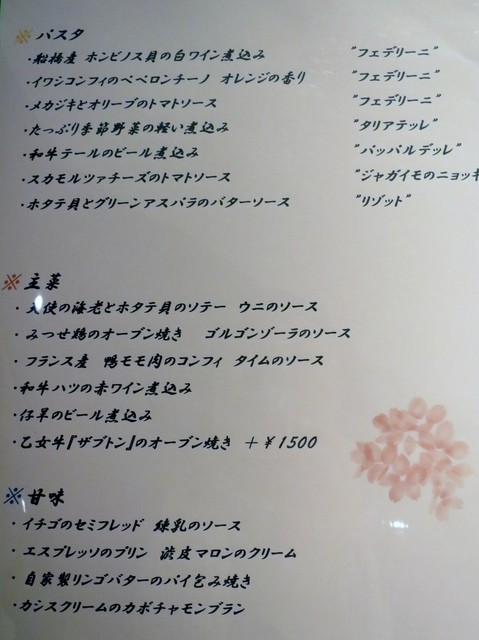 ※ パスタ
・船橋産 ホンビノス貝の白ワイン煮込み "フェデリーニ"
・イワシコンフィのペペロンチーノ オレンジの香り "フェデリーニ"
・メカジキとオリーブのトマトソース "フェデリーニ"
・たっぷり季節野菜の軽い煮込み "タリアテッレ"
・和牛テールのビール煮込み "パッパルデッレ"
・スカモルツァチーズのトマトソース "ジャガイモのニョッキ
・ホタテ貝とグリーンアスパラのバターソース "リゾット"
※ 主菜
・天使の海老とホタテ貝のソテー ウニのソース
・みつせ鶏のオーブン焼き ゴルゴンゾーラのソース
・フランス産 鴨モモ肉のコンフィ タイムのソース
・和牛ハツの赤ワイン煮込み
・仔羊のビール煮込み
・乙女牛『ザブトン』のオーブン焼き ＋￥1500
※ 甘味
・イチゴのセミフレッド 練乳のソース
・エスプレッソのプリン 渋皮マロンのクリーム
・自家製リンゴバターのパイ包み焼き
・カシスクリームのカボチャモンブラン